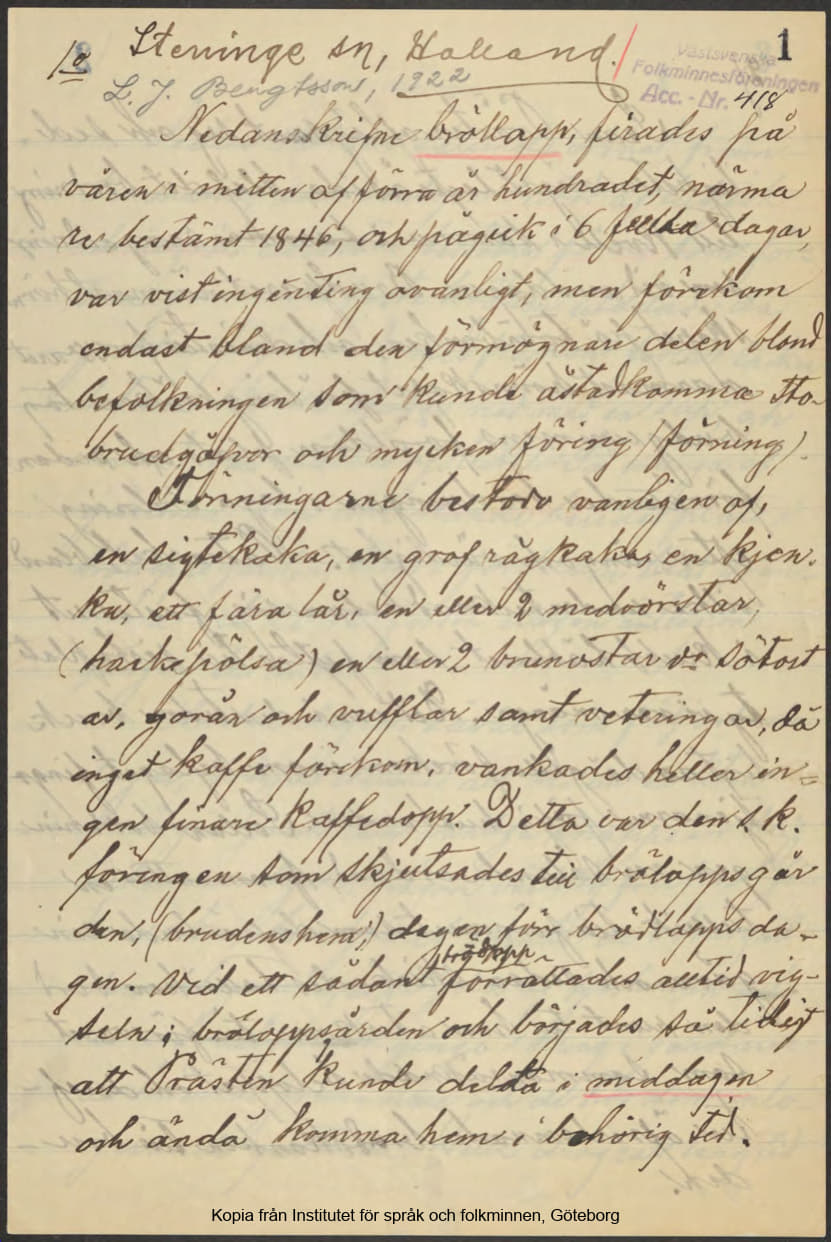 1o Steninge sn, Halland. 1
L. J. Bengtsson, 1922
Västsvenska
Folkminnesföreningen
Acc. - Nr. 418
Nedanskrifne bröllapp, firades på
våren i mitten af förra århundradet, närma
re bestämt 1846, och pågick i 6 fulla dagar,
var vist ingenting ovanligt, men förekom
endast bland den förmögnare delen bland
befolkningen som kunde åstadkomma sto-
brudgåfvor och mycken föring (förning).
Förningarne bestodo vanligen af,
en sigtekaka, en grof rågkaka, en kjen-
ka, ett fåra lår, en eller 2 medvörstar,
(hackepölsa) en eller 2 brunostar o sötost
ar, gorån och vufflar samt veteringar, då
inget kaffe förekom, vankades heller in=
gen finare kaffedopp. Detta var den s. k.
föringen som skjutsades till brölappsgår
den, (brudens hem,) dagen förr brödlapps da-
gen. Vid ett sådant brödlopp förrättades alltid vig-
seln i brölappsgården och börjades så tidigt
att Prästen kunde deltå i middagen
och ändå komma hem i behörig tid.
Kopia från Institutet för språk och folkminnen, Göteborg